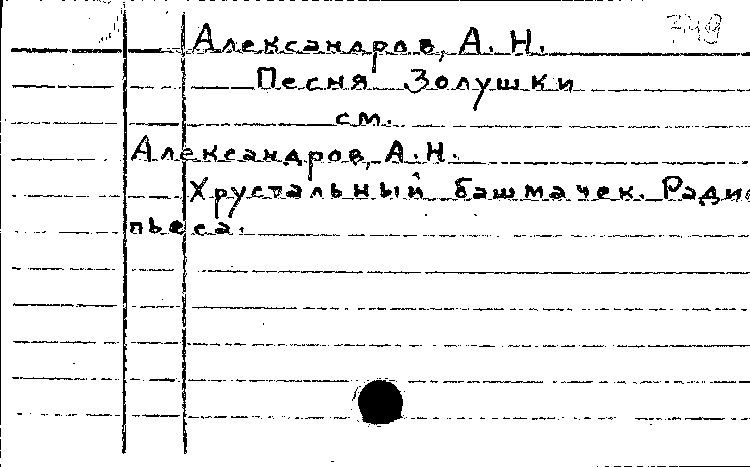 Александров, А. Н.
Песня Золушки
см.
Александров, А. Н.
Хрустальный башмачек. Радио
пьеса.